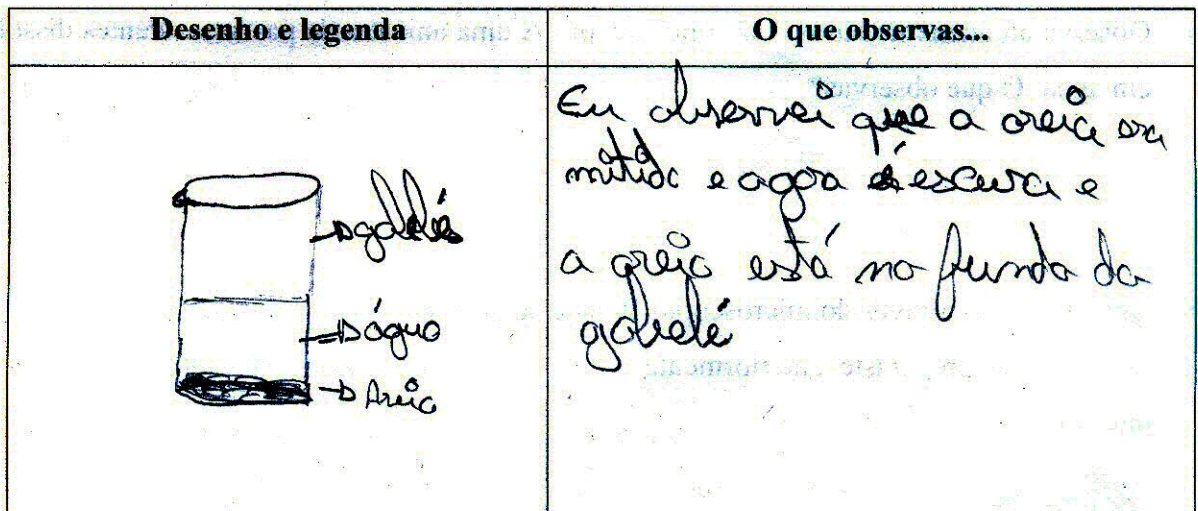 Desenho e legenda
O que observas...
gobelés
água
Areia
Eu observei que a areia era
nitida e agora é escura e
a areia está no fundo do
gobelé